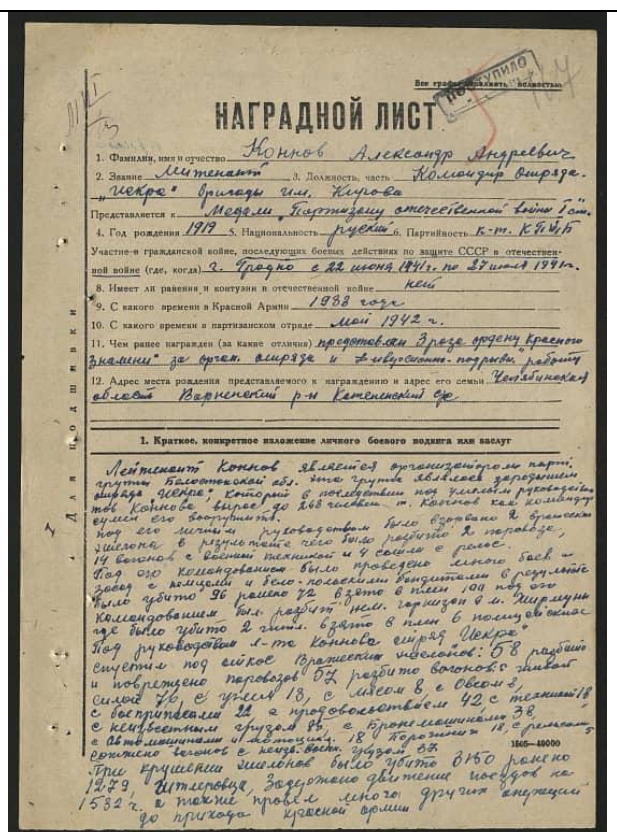 Все графы заполнять полностью
ПОСТУПИЛО
НАГРАДНОЙ ЛИСТ
1. Фамилия, имя и отчество Коннов Александр Андреевич
2. Звание Лейтенант 3. Должность, часть Командир отряда
"Искра" бригады им. Кирова
Представляется к Медали "Партизану отечественной войны I ст.
4. Год рождения 1919 5. Национальность руский 6. Партийность к-т. КП/б/Б
Участие в гражданской войне, последующих боевых действиях по защите СССР в отечествен-
ной войне (где, когда) г. Гродно с 22 июня 1941 г. по 27 июля 1941 г.
8. Имеет ли ранения и контузии в отечественной войне нет
9. С какого времени в Красной Армии 1938 года
10. С какого времени в партизанском отряде Май 1942 г.
11. Чем ранее награжден (за какие отличия) представлен 3 раза ордену Красного
знамени" за орган. отряда и подрывн. работу
12. Адрес места рождения представляемого к награждению и адрес его семьи Челябинская
область Варненский р-н Катененский с/с
Для подшивки
1. Краткое, конкретное изложение личного боевого подвига или заслуг
Лейтенант Коннов является организатором парти.
группы Белостокской обл. эта группа являлась зародышем
отряда "Искра" который в последствии под умелым руководством
тов Коннова вырос до 268 человек. т. Коннов как командир
сумел его вооружить.
Под его личным руководством было взорвано 2 вражеских
эшелона в результате чего было разбито 2 паровоза,
14 вагонов с военной техникой и 4 с рельс.
Под его командованием было проведено много боев и
засад с немцами и бело-польскими бандитами в результате
было убито 96 ранено 72 взято в плен под его
командованием был разбит нем. гарнизон в м. Жирмуны
где было убито 2 гитл. взято в плен 6 полицейских
Под руководством л-та Коннова отряд "Искра"
спустил под откос Вражеских эшелонов: 58 разбито
и повреждено паровозов 57 разбито вагонов: с живой
силой 76, с углем 18, с мясом 8 с Овсом 8,
с боеприпасами 22 с продовольствием 42 с техникой 18
с неизвестным грузом 95, с Бронемашинами 38,
с Автомашинами и мотоцикл. 18 Порожних 18, с рельсами 5
сожжено вагонов с неизвест. грузом 37
1605—40000
При крушении эшелонов было убито 3150 ранено
1279, гитлеровца, Задержано движение поездов на
1532 г. а также провел много других операций
до прихода красной армии